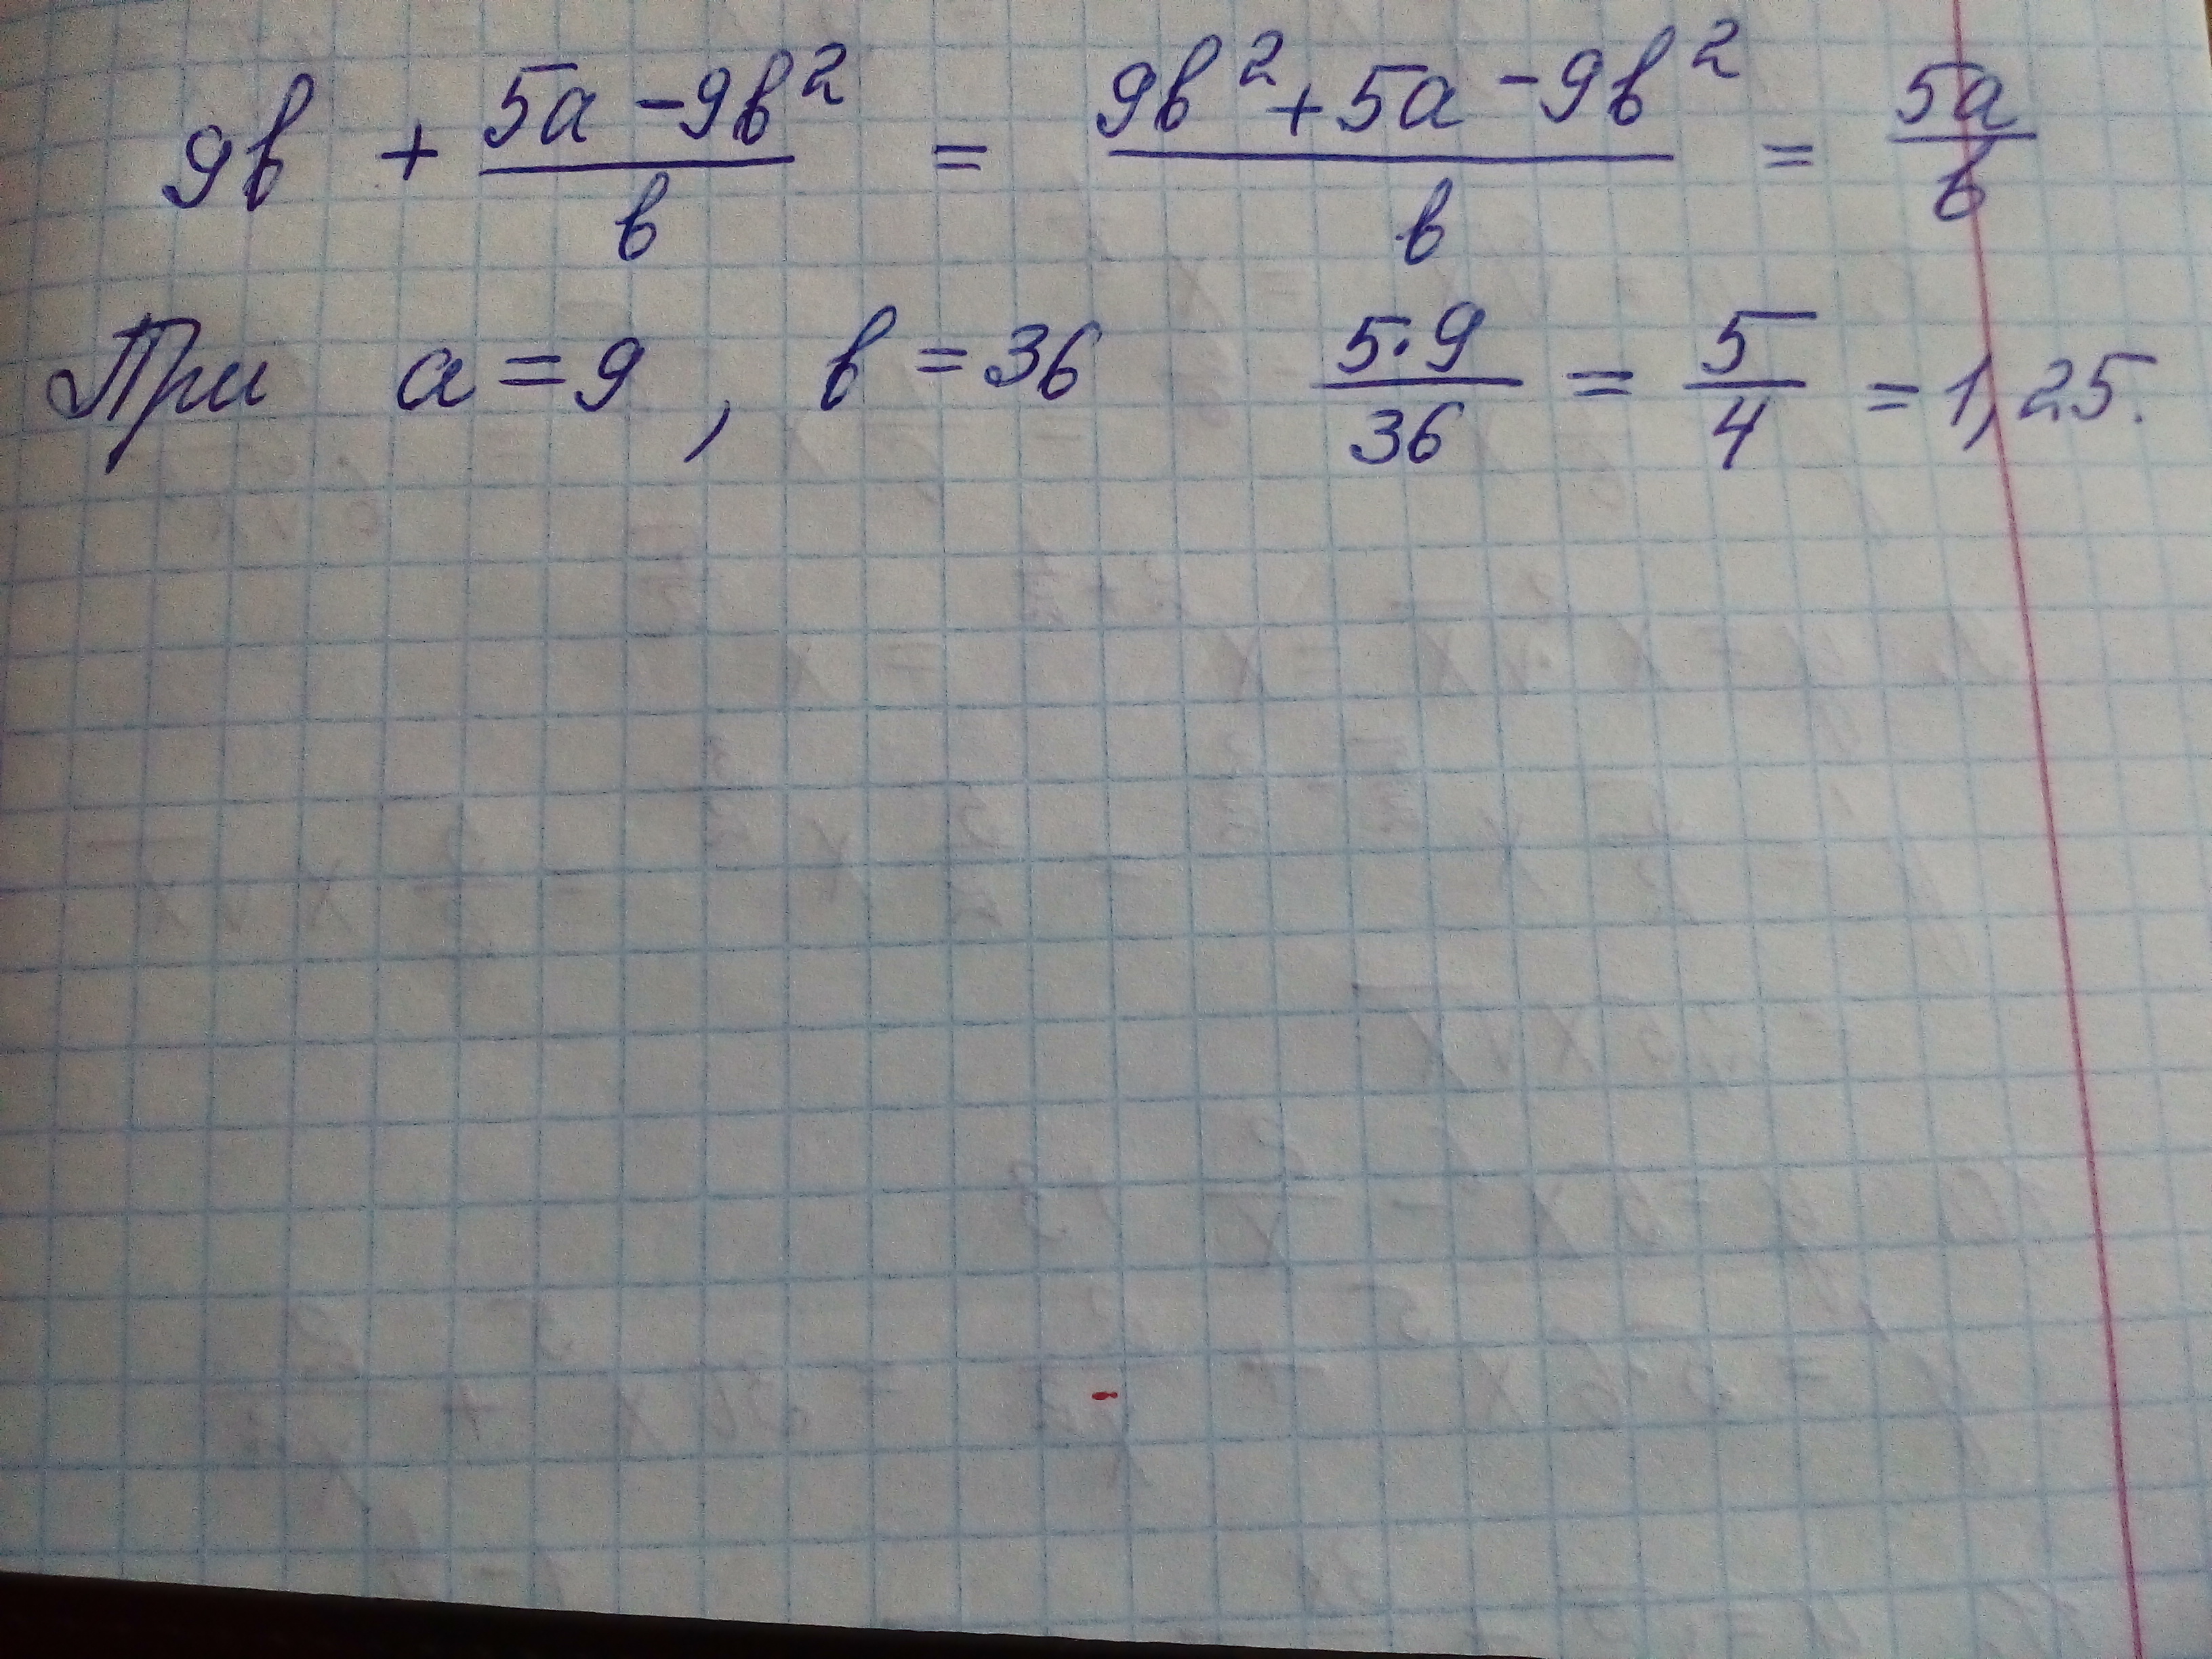 9b + (5a - 9b²)/b = (9b² + 5a - 9b²)/b = 5a/b
При a = 9, b = 36 (5·9)/36 = 5/4 = 1,25.